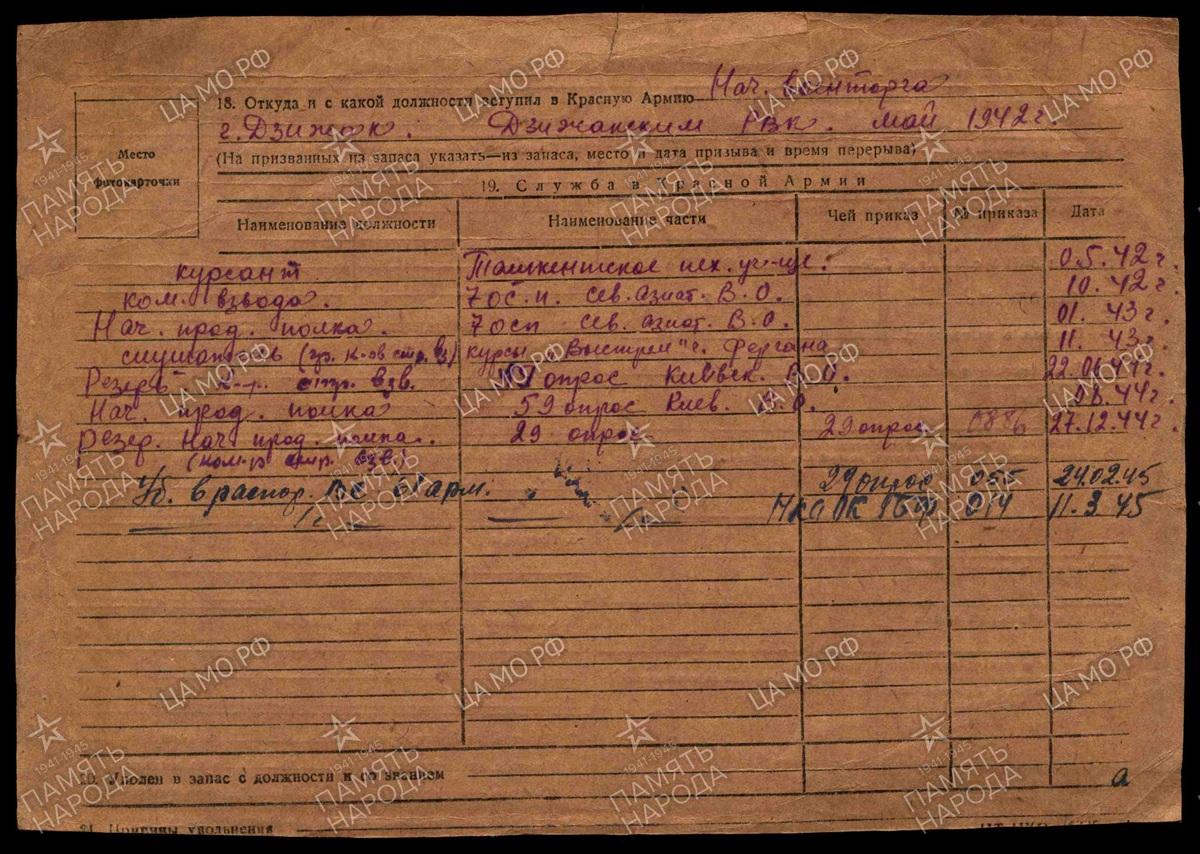 18. Откуда и с какой должности вступил в Красную Армию Нач. военторга
г. Дзижак. Дзижакским РВК. май 1942 г
(На призванных из запаса указать—из запаса, место и дата призыва и время перерыва)
Место
фотокарточки
19. Служба в Красной Армии
Наименование должности Наименование части Чей приказ № приказа Дата
курсант Ташкентское пех. уч-ще. 05.42 г.
ком. взвода. 7 ос.п. Сев. Азиат. В.О. 10.42 г.
Нач. прод. полка. 7 осп Сев. Азиат. В.О. 01.43 г.
слушатель курсы "Выстрел" г. Фергана 11.43 г.
Резерв к-р. стр. взв. опрос Киевск. В.О. 22.06.44 г.
Нач. прод. полка 59 опрос Киев. В.О. 08.44 г.
Резер. Нач. прод. полка. 29 опрос 29 опрос 0886 27.12.44 г.
(ком-р стр. взв.)
Уб. в распор. арм. 29 опрос 055 24.02.45
014 11.3.45
20. Уволен в запас с должности и со званием
а
21. Причины увольнения
ЦА МО РФ
1941-1945
ПАМЯТЬ
НАРОДА